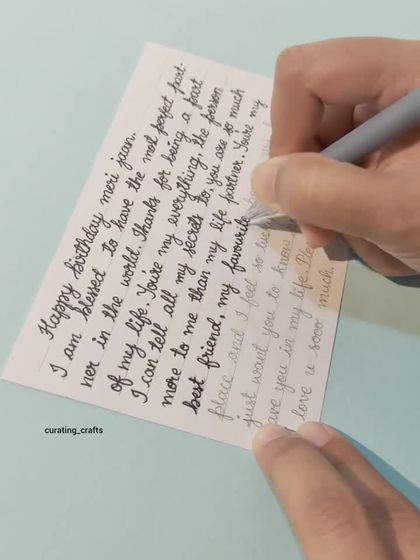 Happy birthday meri jaan.
I am blessed to have the most perfect part-
ner in the world. Thanks for being a part
of my life. You're my everything, the person
I can tell all my secrets to, you are so much
more to me than my life partner. You're my
best friend, my favourite
place and I feel so luc
just want you to know
ave you in my life. Ple
love u sooo much.
curating_crafts